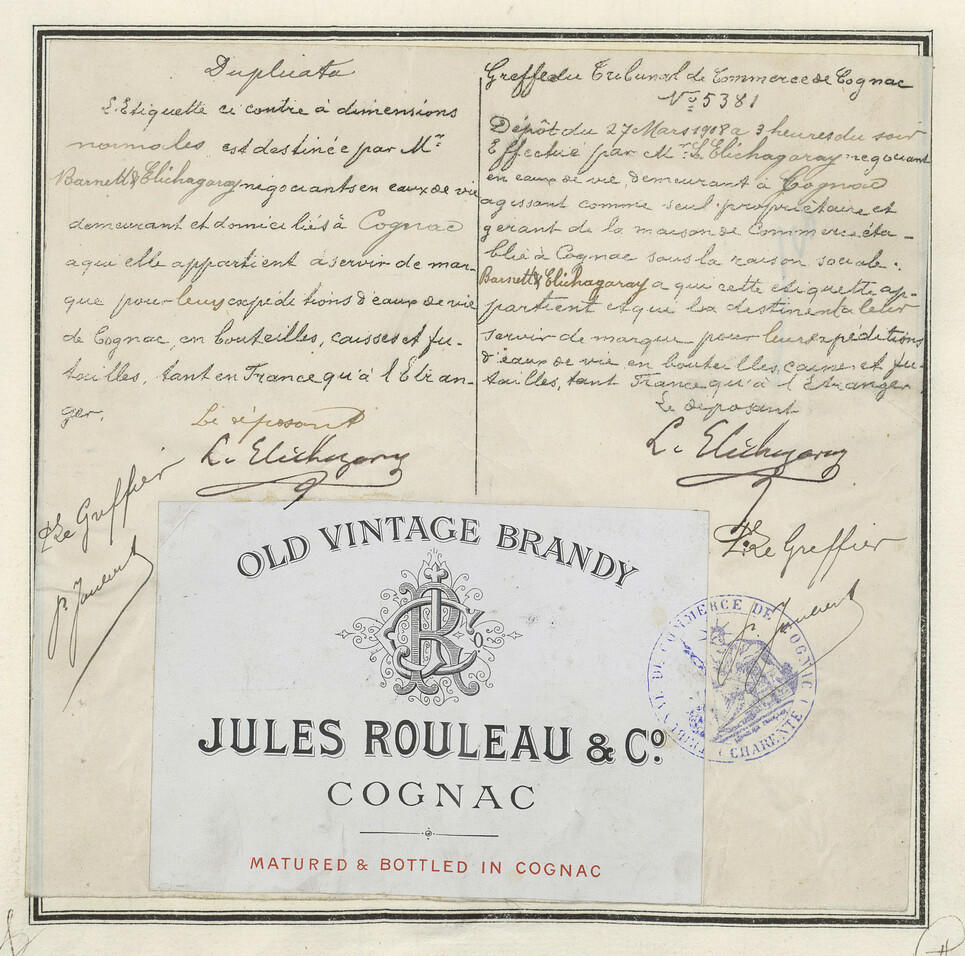 Duplicata
L'Etiquette ci contre à dimensions
normales est destinée par Mr.
Barnett & Elichagaray négociants en eaux de vie
demeurant et domiciliés à Cognac
a qui elle appartient à servir de mar-
que pour leurs expéditions d'eaux de vie
de Cognac, en bouteilles, caisses et fu-
tailles, tant en France qu'à l'Etran-
ger.
Le déposant
L. Elichagaray
Le Greffier
Greffe du Tribunal de Commerce de Cognac
No 5381
Dépôt du 27 Mars 1908 a 3 heures du soir
Effectué par Mr L. Elichagaray négociant
en eaux de vie, demeurant à Cognac
agissant comme seul propriétaire et
gérant de la maison de Commerce éta-
blie à Cognac sous la raison sociale :
Barnett & Elichagaray a qui cette etiquette ap-
partient et qui la destinent a leur
servir de marque pour leurs expéditions
d'eaux de vie en bouteilles, caisses et fu-
tailles, tant France qu'a l'Etranger
Le déposant
L. Elichagaray
Le Greffier
OLD VINTAGE BRANDY
JULES ROULEAU & Co.
COGNAC
MATURED & BOTTLED IN COGNAC
TRIBUNAL DE COMMERCE DE COGNAC
(CHARENTE)